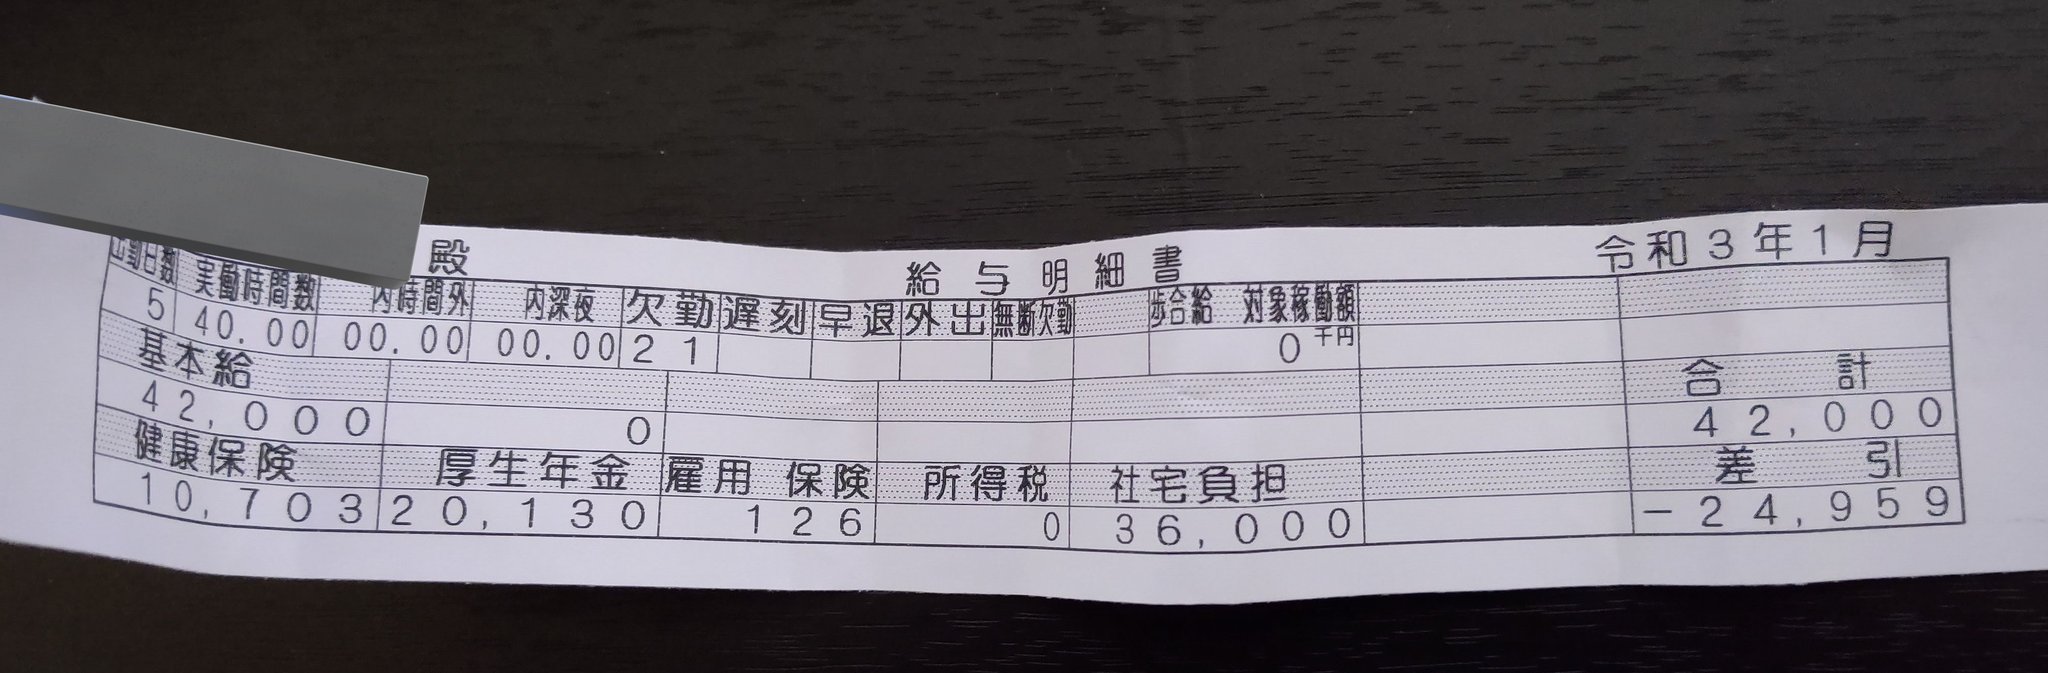 殿 給与明細書 令和3年1月
出勤日数 実働時間数 内時間外 内深夜 欠勤 遅刻 早退 外出 無断欠勤 歩合給 対象稼働額
5 40.00 00.00 00.00 21 0千円
基本給 合計
42,000 0 42,000
健康保険 厚生年金 雇用保険 所得税 社宅負担 差引
10,703 20,130 126 0 36,000 -24,959